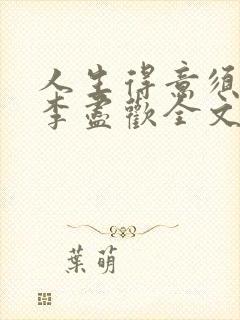 人生得意須
李盡歡全文
葉萌